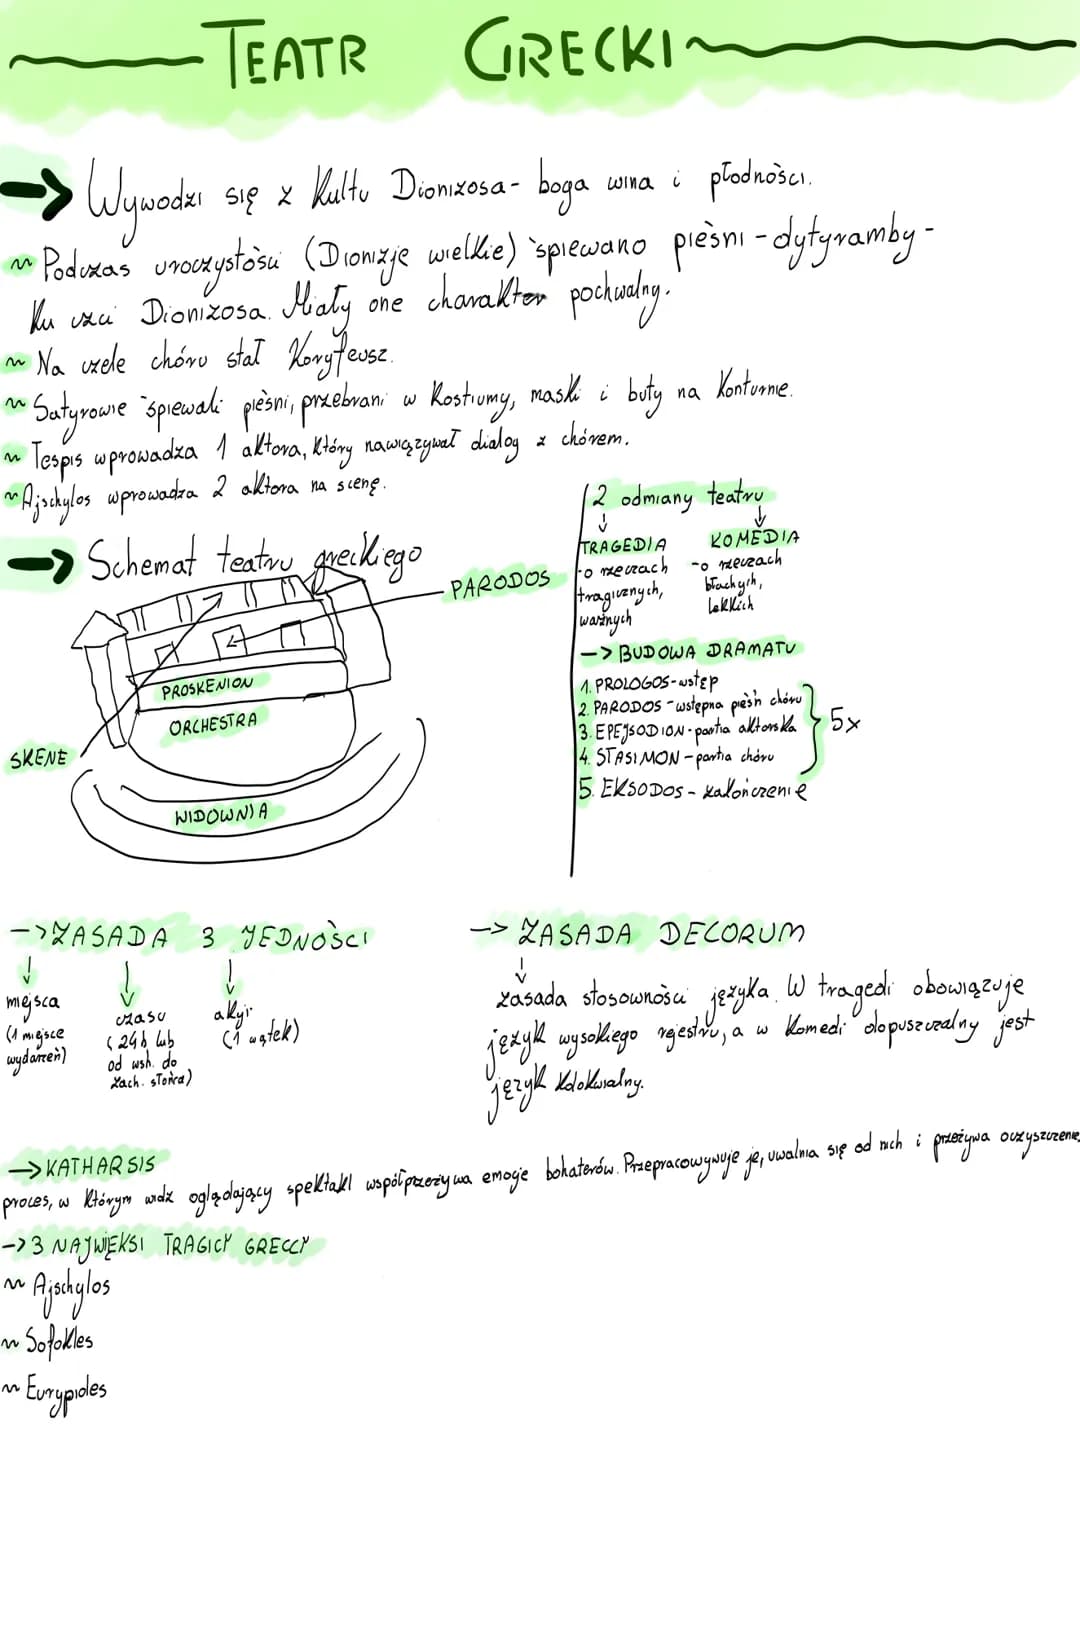 TEATR GRECKI
→ Wywodzi się z kultu Dionizosa - boga wina i płodności.
~ Podczas uroczystości (Dionizje wielkie) śpiewano pieśni - dytyramby -
ku czci Dionizosa. Miały one charakter pochwalny.
~ Na czele chóru stał Koryfeusz.
~ Satyrowie śpiewali pieśni, przebrani w kostiumy, maski i buty na konturnie.
~ Tespis wprowadza 1 aktora, który nawiązywał dialog z chórem.
~ Ajschylos wprowadza 2 aktora na scenę.
→ Schemat teatru greckiego
PARODOS
PROSKENION
ORCHESTRA
SKENE
WIDOWNIA
2 odmiany teatru
TRAGEDIA
- o rzeczach
tragicznych,
ważnych
KOMEDIA
- o rzeczach
błachych,
lekkich
-> BUDOWA DRAMATU
1. PROLOGOS - wstęp
2. PARODOS - wstępna pieśń chóru
3. EPEJSODION - partia aktorska
4. STASIMON - partia chóru
5x
5. EKSODOS - zakończenie
-> ZASADA 3 JEDNOŚCI
miejsca
(1 miejsce
wydarzeń)
czasu
(24h lub
od wsh. do
zach. słońca)
akcji
(1 wątek)
-> ZASADA DECORUM
zasada stosowności języka. W tragedi obowiązuje
język wysokiego rejestru, a w komedi dopuszczalny jest
język kolokwialny.
-> KATHARSIS
proces, w którym widz oglądający spektakl współprzeżywa emocje bohaterów. Przepracowywuje je, uwalnia się od nich i przeżywa oczyszczenie.
-> 3 NAJWIĘKSI TRAGICY GRECCY
~ Ajschylos
~ Sofokles
~ Eurypides